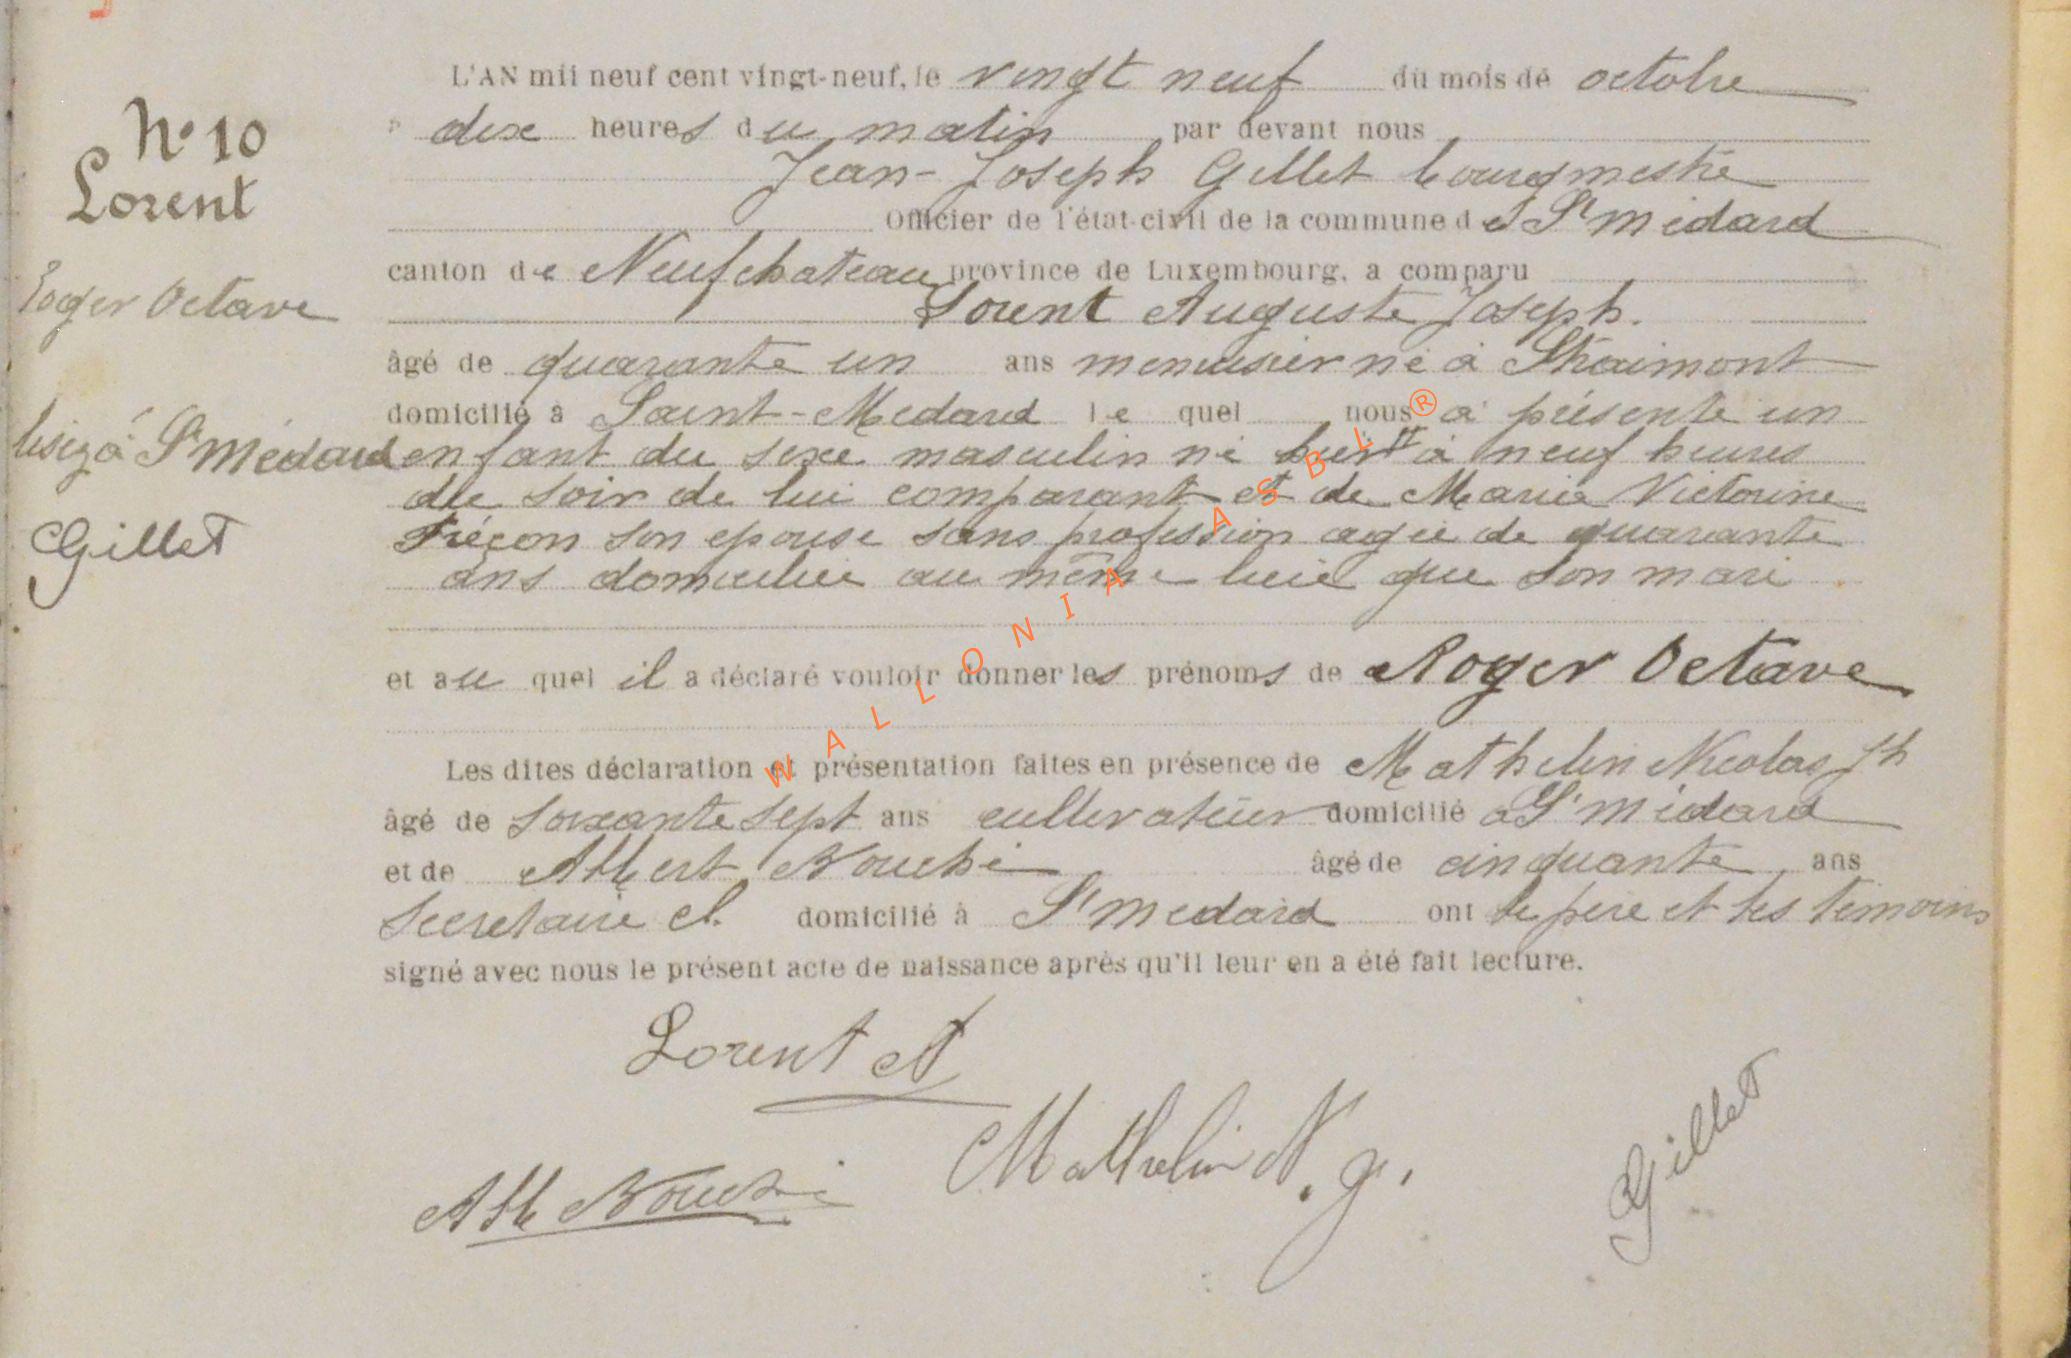 N° 10
Lorent
Roger Octave
lisez à St Médard
Gillet
L'AN mil neuf cent vingt-neuf, le vingt neuf du mois de octobre
à dix heures du matin par devant nous
Jean-Joseph Gillet bourgmestre
Officier de l'état-civil de la commune de St Médard
canton de Neufchateau province de Luxembourg, a comparu
Lorent Auguste Joseph.
âgé de quarante un ans menuisier né à Straimont
domicilié à Saint-Médard le quel nous a présenté un
enfant du sexe masculin né hier à neuf heures
du soir de lui comparant et de Maria Victorine
son epouse sans profession agée de quarante
ans domiciliée au même lieu que son mari
et au quel il a déclaré vouloir donner les prénoms de Roger Octave
Les dites déclaration et présentation faites en présence de Mathelin Nicolas Jh
âgé de soixante sept ans cultivateur domicilié à St Médard
et de Albert Bouché âgé de cinquante ans
secretaire cl. domicilié à St Médard ont le père et les témoins
signé avec nous le présent acte de naissance après qu'il leur en a été fait lecture.
Lorent A
Mathelin N. J.
Alb Bouché
Gillet
WALLONIA ASBL ®